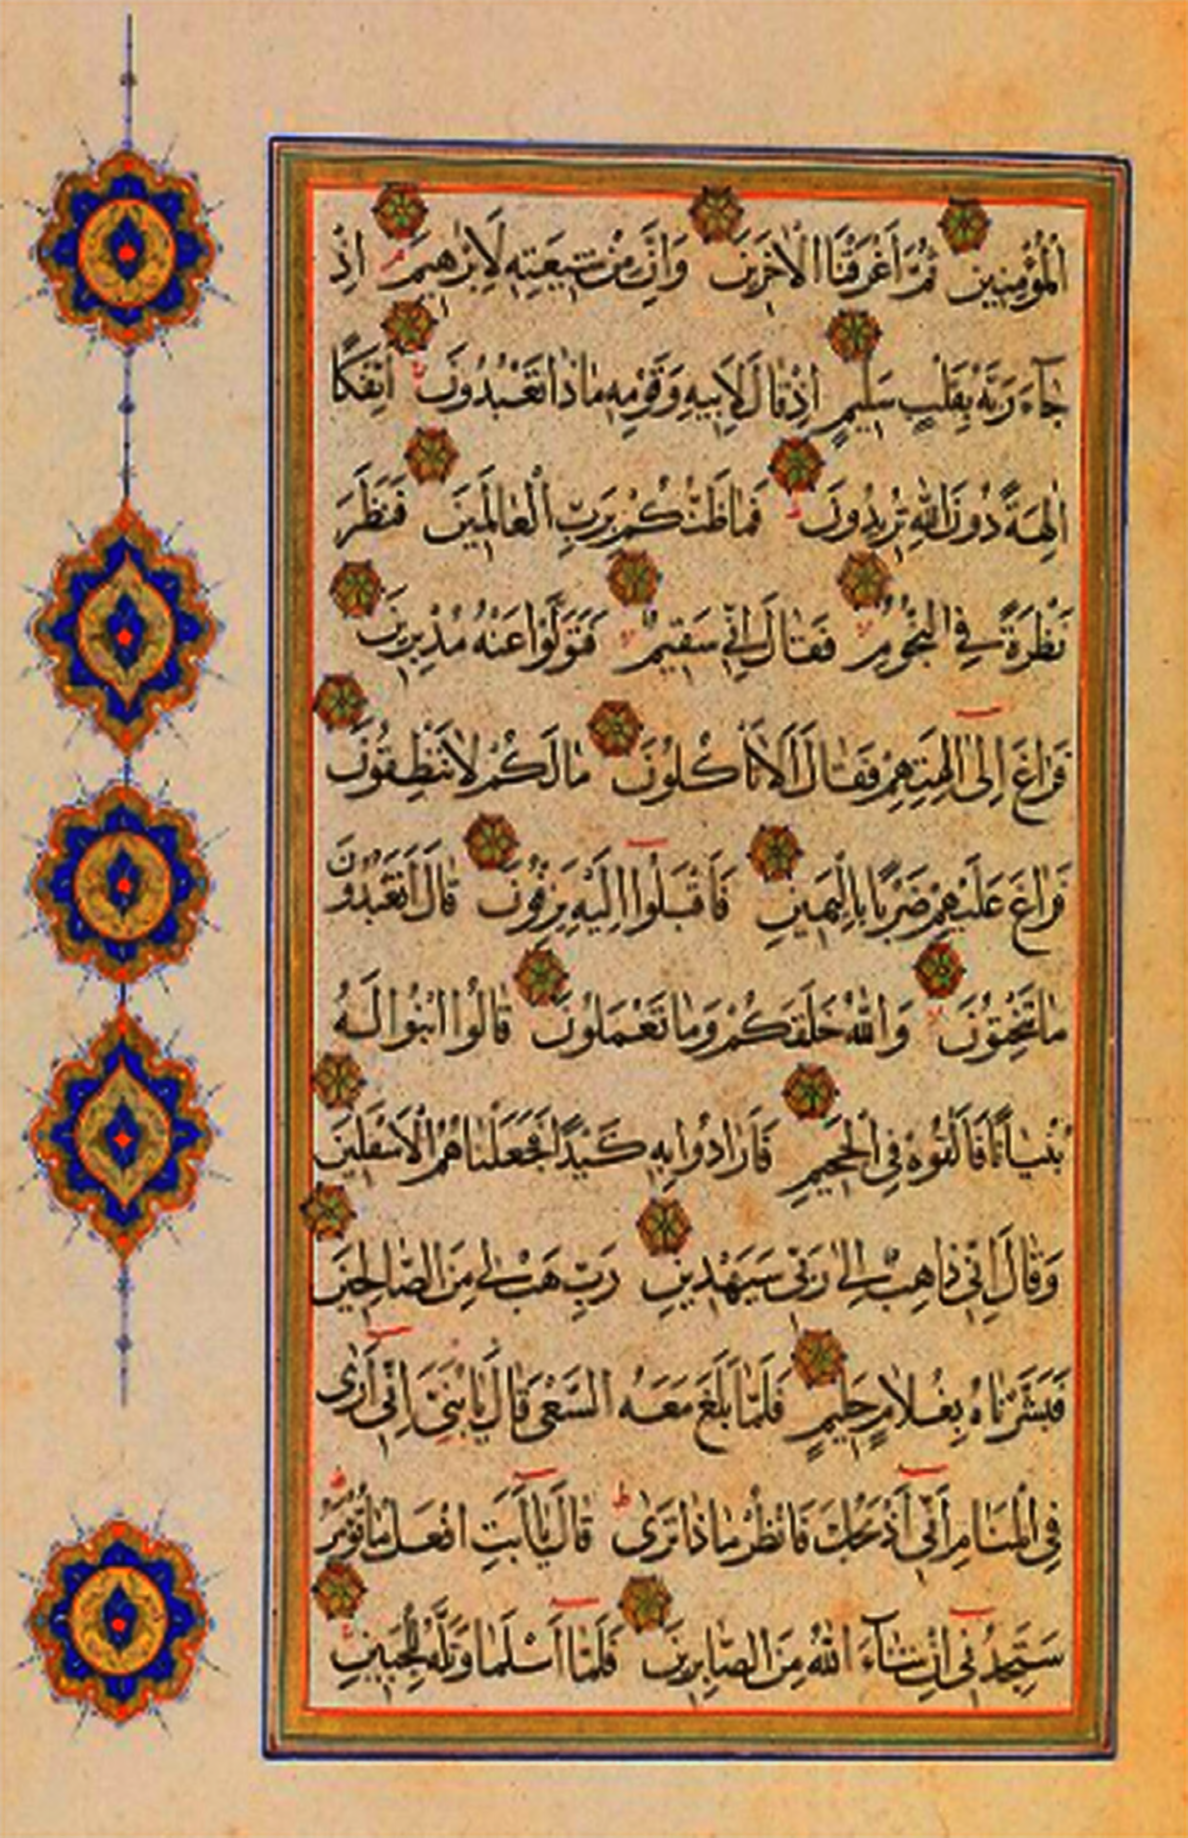 الْمُؤْمِنِينَ ثُمَّ أَغْرَقْنَا الْاٰخَرِينَ وَاِنَّ مِنْ شِيعَتِهِ لَاِبْرٰهِيمَ اِذْ
جَآءَ رَبَّهُ بِقَلْبٍ سَلِيمٍ اِذْ قَالَ لِاَبِيهِ وَقَوْمِهِ مَاذَا تَعْبُدُونَ اَئِفْكًا
اٰلِهَةً دُونَ اللّٰهِ تُرِيدُونَ فَمَا ظَنُّكُمْ بِرَبِّ الْعَالَمِينَ فَنَظَرَ
نَظْرَةً فِي النُّجُومِ فَقَالَ اِنِّي سَقِيمٌ فَتَوَلَّوْا عَنْهُ مُدْبِرِينَ
فَرَاغَ اِلٰى اٰلِهَتِهِمْ فَقَالَ اَلَا تَأْكُلُونَ مَا لَكُمْ لَا تَنْطِقُونَ
فَرَاغَ عَلَيْهِمْ ضَرْبًا بِالْيَمِينِ فَاَقْبَلُوا اِلَيْهِ يَزِفُّونَ قَالَ اَتَعْبُدُونَ
مَا تَنْحِتُونَ وَاللّٰهُ خَلَقَكُمْ وَمَا تَعْمَلُونَ قَالُوا ابْنُوا لَهُ
بُنْيَانًا فَاَلْقُوهُ فِي الْجَحِيمِ فَاَرَادُوا بِهِ كَيْدًا فَجَعَلْنَاهُمُ الْاَسْفَلِينَ
وَقَالَ اِنِّي ذَاهِبٌ اِلٰى رَبِّي سَيَهْدِينِ رَبِّ هَبْ لِي مِنَ الصَّالِحِينَ
فَبَشَّرْنَاهُ بِغُلَامٍ حَلِيمٍ فَلَمَّا بَلَغَ مَعَهُ السَّعْيَ قَالَ يَا بُنَيَّ اِنِّي اَرٰى
فِي الْمَنَامِ اَنِّي اَذْبَحُكَ فَانْظُرْ مَاذَا تَرٰى قَالَ يَا اَبَتِ افْعَلْ مَا تُؤْمَرُ
سَتَجِدُنِي اِنْ شَآءَ اللّٰهُ مِنَ الصَّابِرِينَ فَلَمَّا اَسْلَمَا وَتَلَّهُ لِلْجَبِينِ